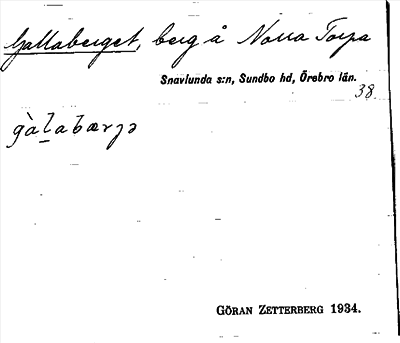 Gallaberget, berg å Norra Torpa
Snavlunda s:n, Sundbo hd, Örebro län.
38
gàlabærjə
GÖRAN ZETTERBERG 1934.